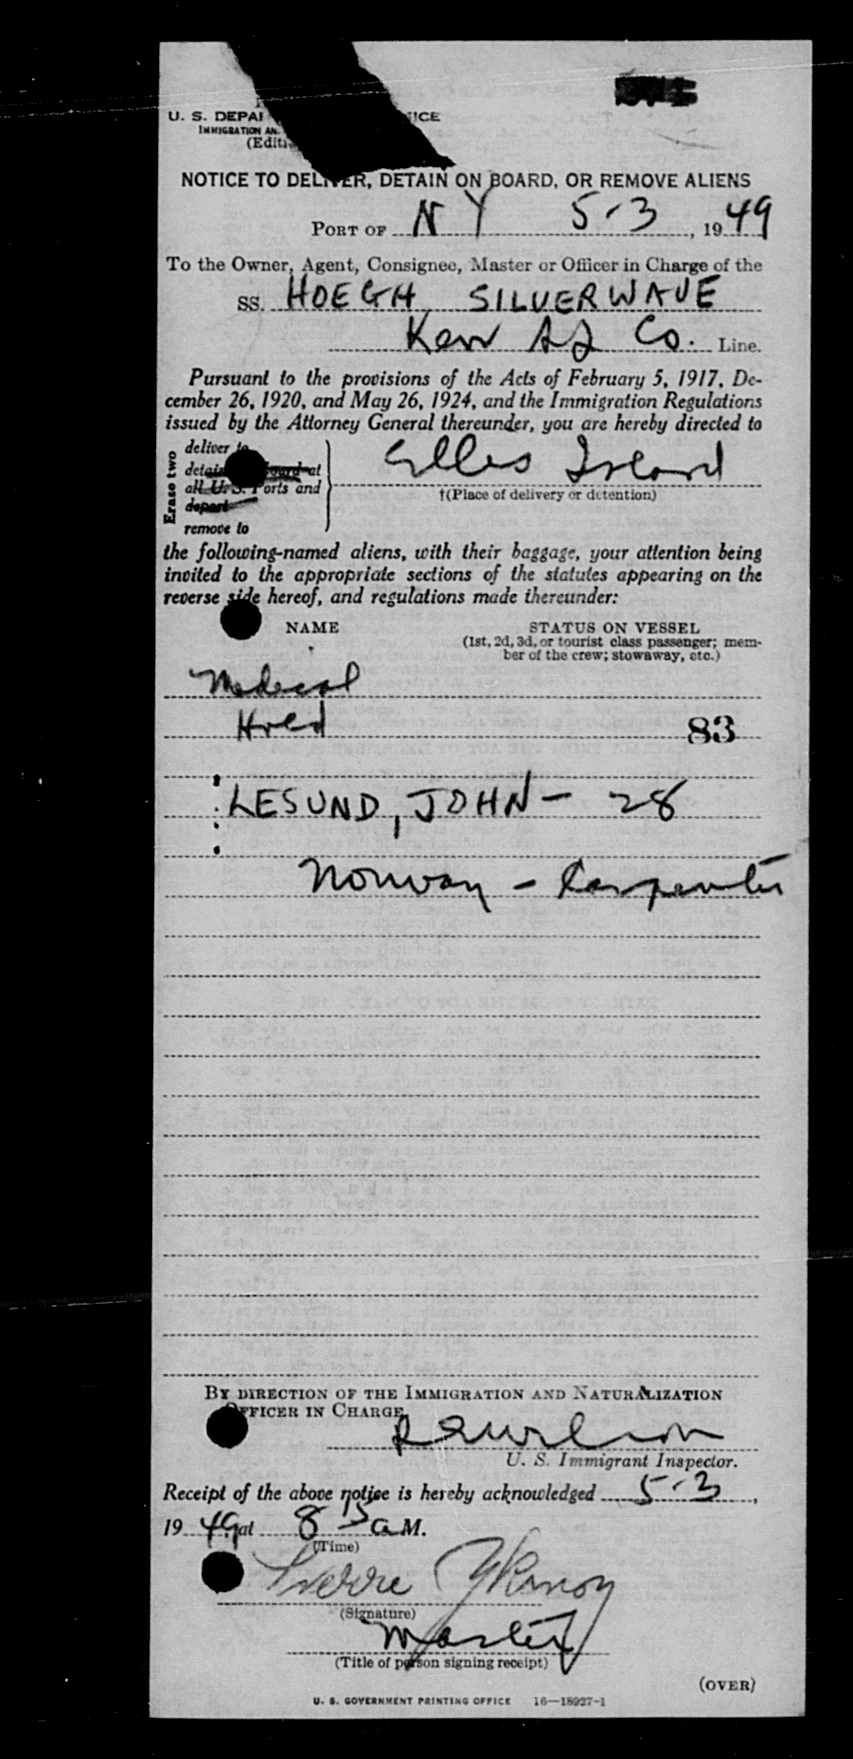 U. S. DEPA ICE
IMMIGRATION AN
(Editi
NOTICE TO DELIVER, DETAIN ON BOARD, OR REMOVE ALIENS
PORT OF NY 5-3, 1949
To the Owner, Agent, Consignee, Master or Officer in Charge of the
SS. HOEGH SILVERWAVE
Kerr Co. Line.
Pursuant to the provisions of the Acts of February 5, 1917, De-
cember 26, 1920, and May 26, 1924, and the Immigration Regulations
issued by the Attorney General thereunder, you are hereby directed to
Erase two
deliver to
detain board at
all U. S. Ports and
depart
remove to
Ellis Island
†(Place of delivery or detention)
the following-named aliens, with their baggage, your attention being
invited to the appropriate sections of the statutes appearing on the
reverse side hereof, and regulations made thereunder:
NAME STATUS ON VESSEL
(1st, 2d, 3d, or tourist class passenger; mem-
ber of the crew; stowaway, etc.)
Medical
Hold 83
LESUND, JOHN - 28
Norway - Carpenter
BY DIRECTION OF THE IMMIGRATION AND NATURALIZATION
OFFICER IN CHARGE
U. S. Immigrant Inspector.
Receipt of the above notice is hereby acknowledged 5-3,
1949 at 8 15 a M.
(Time)
(Signature)
Master
(Title of person signing receipt)
(OVER)
U. S. GOVERNMENT PRINTING OFFICE 16—18927-1